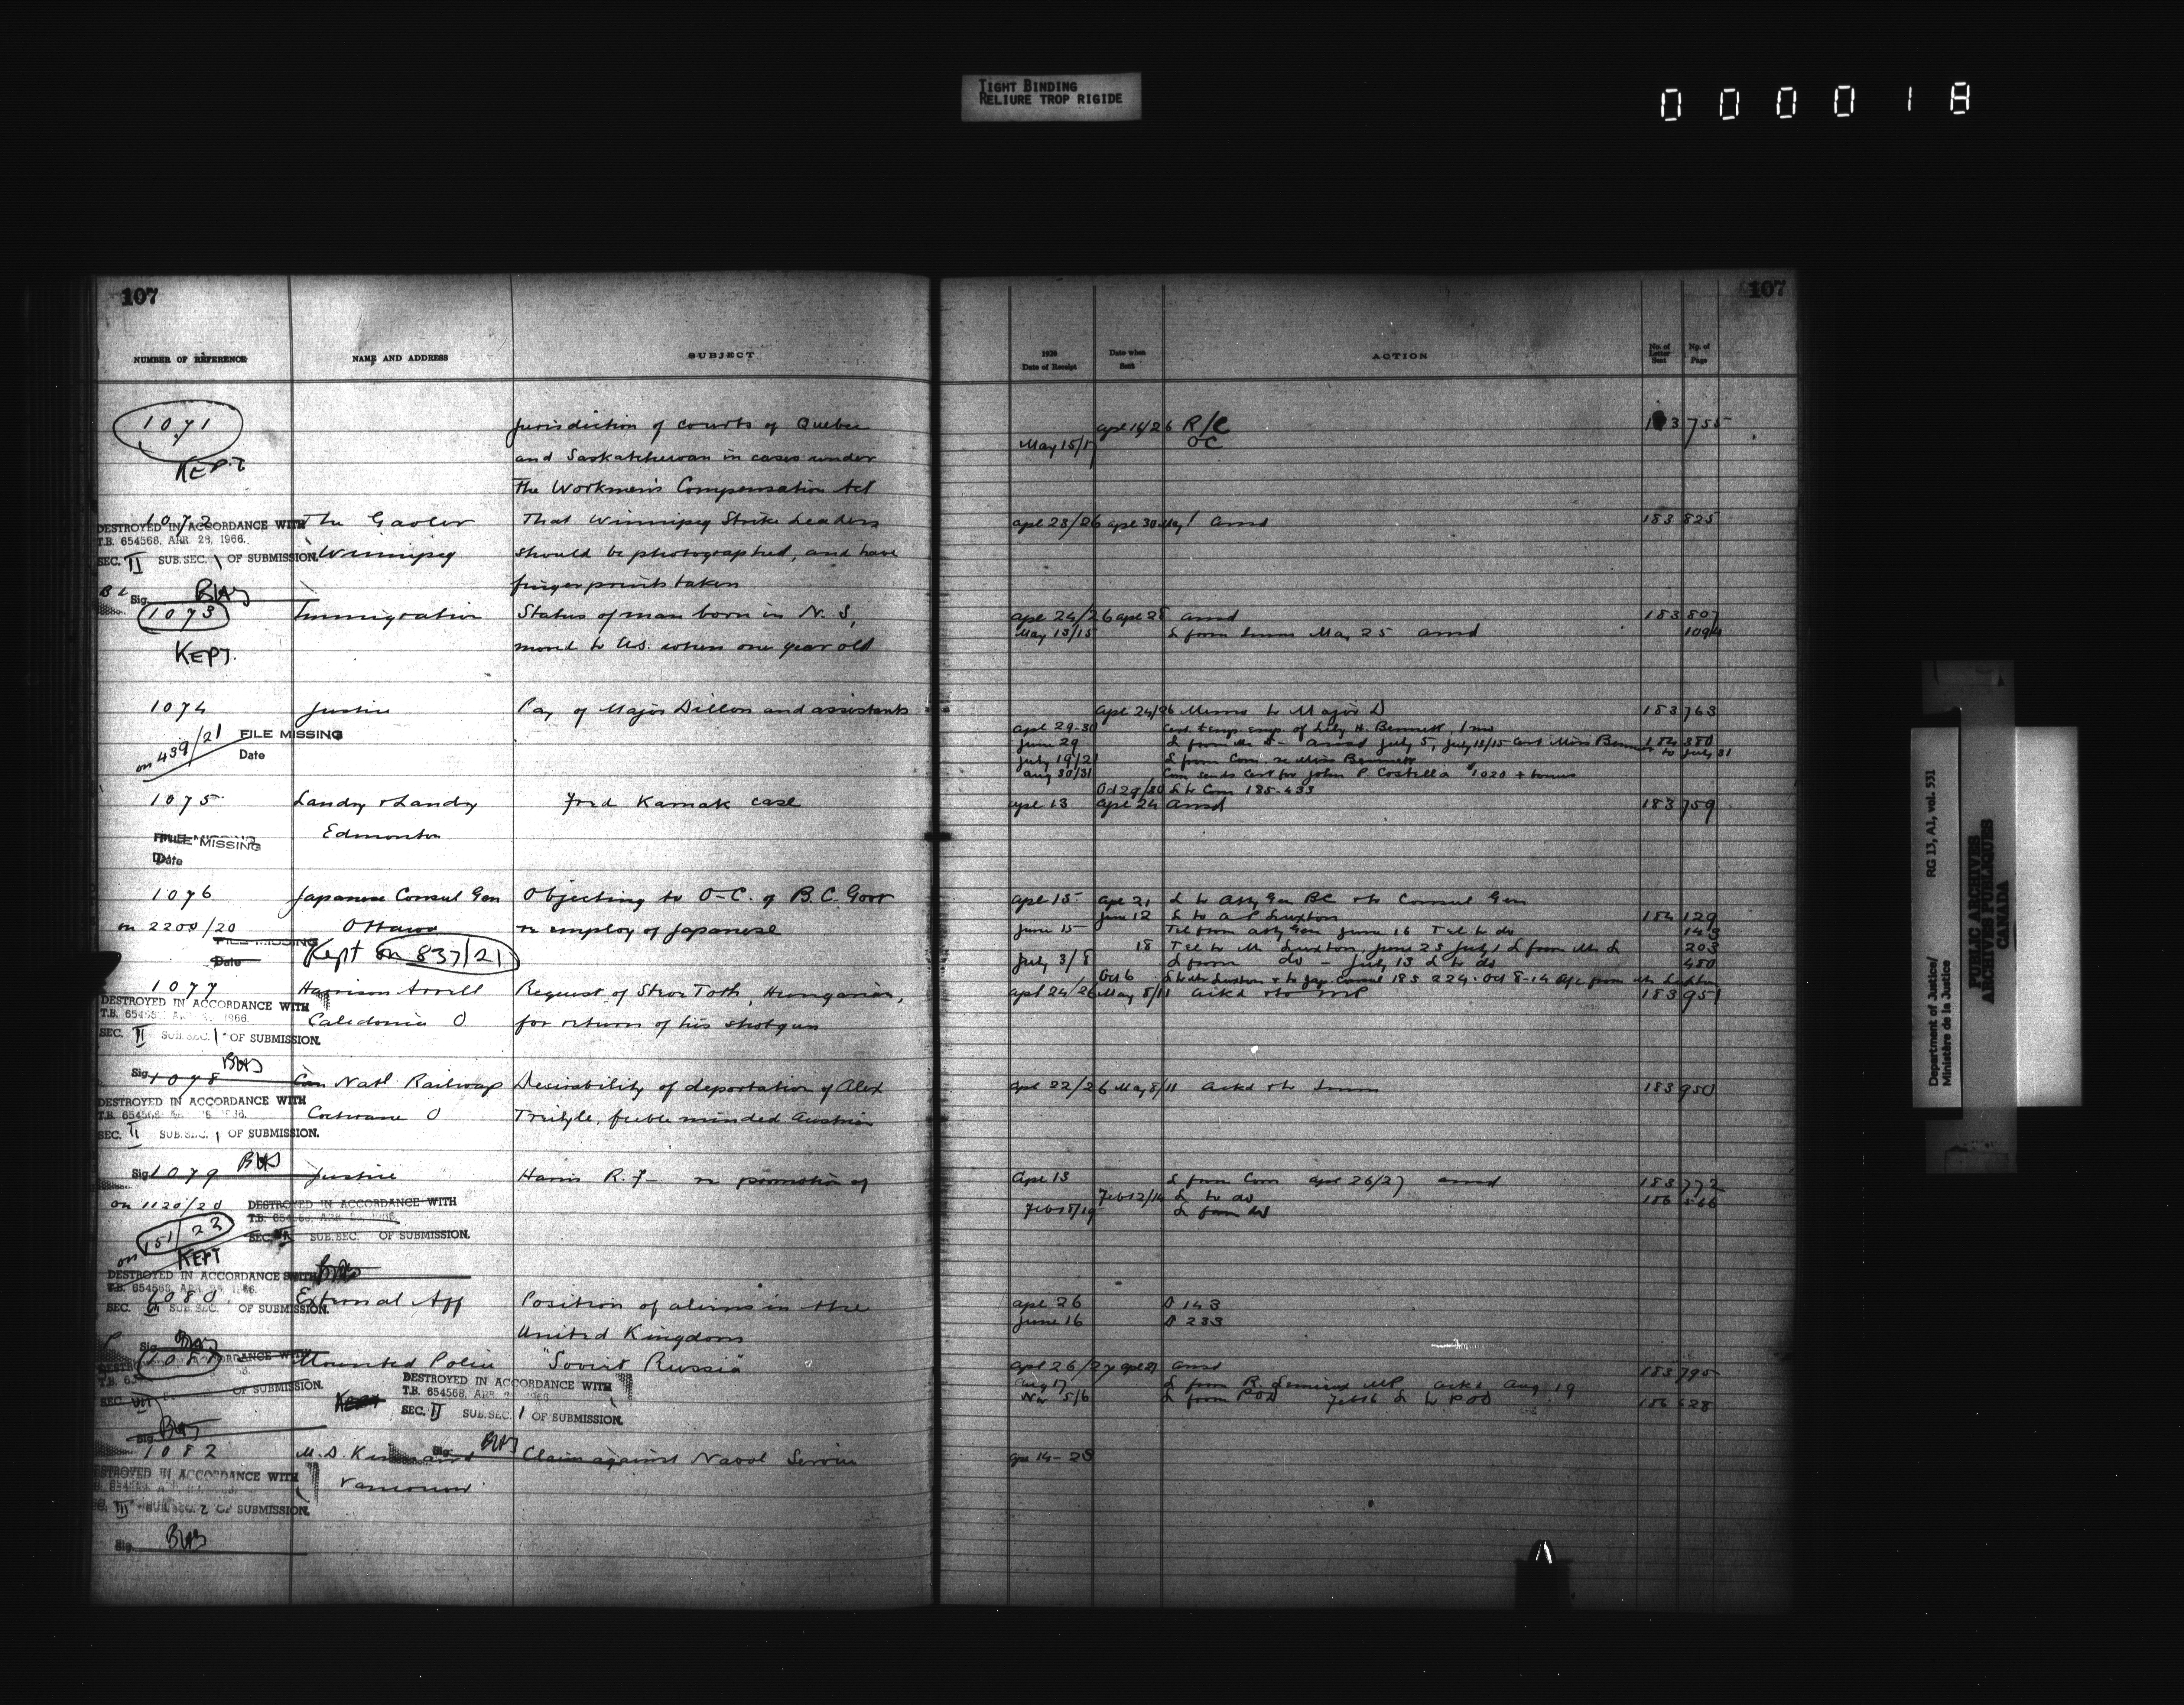 TIGHT BINDING
RELIURE TROP RIGIDE
000018
107
NUMBER OF REFERENCE NAME AND ADDRESS SUBJECT
1071 Jurisdiction of courts of Quebec
and Saskatchewan in cases under
KEPT
the Workmen's Compensation Act
1072 The Gaoler That Winnipeg Strike Leaders
DESTROYED IN ACCORDANCE WITH
T.B. 654568, APR. 28, 1966.
Winnipeg should be photographed, and have
SEC. II SUB. SEC. 1 OF SUBMISSION.
fingerprints taken
Sig.
1073 Immigration Status of man born in N.S,
KEPT. moved to U.S. when one year old
1074 Justice Pay of Major Dillon and assistants
on 439/21 FILE MISSING
Date
1075 Landry & Landry Fred Kamak case
Edmonton
FILE MISSING
Date
1076 Japanese Consul Gen Objecting to O-C. of B.C. Govt
on 2200/20 Ottawa re employ of Japanese
FILE MISSING
Date
Kept on 837/21
1077 Harrison Arrell Request of Steve Toth, Hungarian,
DESTROYED IN ACCORDANCE WITH
T.B. 654568, APR. 28, 1966.
Caledonia O for return of his shotgun
SEC. II SUB. SEC. 1 OF SUBMISSION.
Sig.
1078 Can Natl Railways Desirability of deportation of Alex
DESTROYED IN ACCORDANCE WITH
T.B. 654568
Cochrane O feeble minded Austrian
SEC. II SUB. SEC. 1 OF SUBMISSION.
Sig.
1079 Justice Harris R.F- re promotion of
on 1120/20 DESTROYED IN ACCORDANCE WITH
T.B. 654568, APR.
on 151/22 SEC. SUB. SEC. OF SUBMISSION.
KEPT
DESTROYED IN ACCORDANCE WITH
T.B. 654568, APR. 28, 1966.
1080 External Aff Position of aliens in the
SEC. SUB. SEC. OF SUBMISSION.
United Kingdom
Sig.
1081 Mounted Police "Soviet Russia"
DESTROYED IN ACCORDANCE WITH
T.B. 654568, APR.
SEC. II SUB. SEC. 1 OF SUBMISSION.
OF SUBMISSION.
Sig.
1082 M.D. Claim against Naval Service
DESTROYED IN ACCORDANCE WITH
Vancouver
III SUB. SEC. 2 OF SUBMISSION.
Sig.
107
1920
Date of Receipt Date when
Sent ACTION No. of
Letter
Sent No. of
Page
apl 14/26 R/C 183 755
May 15/17 OC
apl 23/26 apl 30 May 1 ansd 183 825
apl 24/26 apl 28 ansd 183 807
May 13/15 L from Imm May 25 ansd 1094
apl 24/26 Memo to Major D 183 763
apl 29-30 Cert temp emp of Lily H. Bennett, 1 mo
June 29 ansd July 5, July 13/15 Cert Miss Bennett to July 31 184 380
July 19/21 L from Com re Miss Bennett
Aug 30/31 Com sends Cert for John P. Costella $1020 + bonus
Oct 29/30 L to Com 185-433
apl 13 apl 24 ansd 183 759
apl 15 apl 21 L to Atty Gen BC & to Consul Gen
June 12 L to A P Luxton 184 129
June 15 Tel from Atty Gen June 16 Tel to do 143
18 Tel to Mr Luxton, June 23 July 1 L from Mr L 203
July 3/8 L from do - July 13 L to do 480
Oct 6 L to Mr Luxton & to Jap. Consul 185 224. Oct 8-14 from Mr Luxton
apl 24/26 May 8/11 ackd & to MP 183 951
apl 22/26 May 8/11 ackd & to Imm 183 950
Apl 13 L from Com apl 26/27 ansd 183 772
Feb 12/14 L to do 186 566
L from do
apl 26 D 143
June 16 D 233
apl 26/27 apl 29 ansd 183 795
Aug 17 L from R. Lemieux MP ackd Aug 19
Nov 5/6 L from POD Feb 16 L to POD 186 628
apl 14-28
Department of Justice/
Ministère de la Justice
RG 13, A1, vol. 531
PUBLIC ARCHIVES
ARCHIVES PUBLIQUES
CANADA